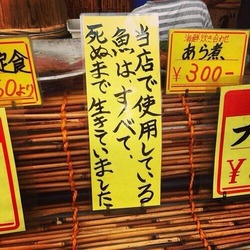 当店で使用している
魚は、すべて、
死ぬまで生きていました。
定食
50より
あら煮
¥300-